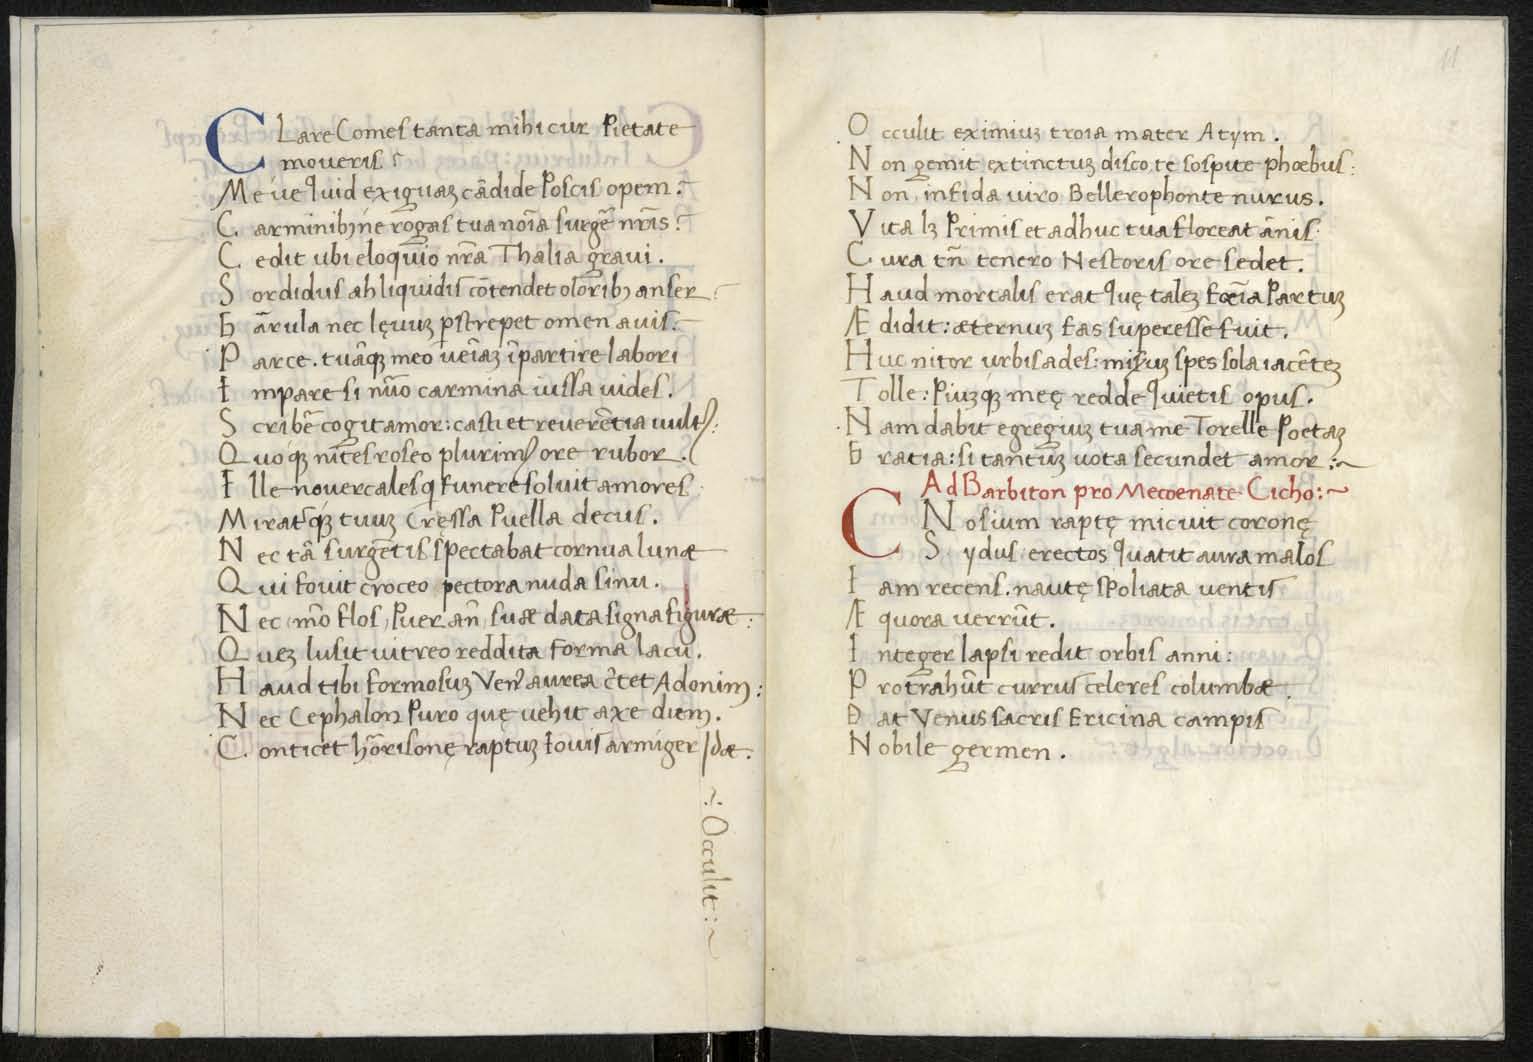 CLare Comes tanta mihi cur Pietate
moveris?
Me ve quid exiguaꝫ cādide Poscis opem?
C arminibꝫ ne rogas tua noīa surgē nr̄is?
C edit ubi eloquio nr̄a Thalia gravi.
S ordidus ah liquidis cōtendet oloribꝫ anser?
G ārula nec lęvuꝫ ꝑstrepet omen avis?
P arce. tuāqꝫ meo veīaꝫ īpartire labori
I mpare si nūo carmina iussa vides.
S cribē cogit amor: casti et reverētia vult9:
Q uoqꝫ nītes roseo plurim9 ore rubor.
I lle novercales q funere solvit amores
Miratqꝫ tuuꝫ Cressa Puella decus.
N ec tā surgētis spectabat cornua lunæ
Q ui fovit croceo pectora nuda sinu.
N ec mō flos, Puer añ, suæ data signa figuræ:
Q ueꝫ lusit vitreo reddita forma lacu.
H aud tibi formosuꝫ Ven9 aurea c̄tet Adonim:
N ec Cephalon Puro quę vehit axe diem.
C onticet hōrisonę raptuꝫ Iovis armiger Idæ:
Occulit:~
11
O cculit eximiuꝫ troia mater Atym.
N on gemit extinctuꝫ disco, te sospite phœbus:
N on, infida viro Bellerophonte nurus.
V ita lꝫ Primis et adhuc tua floreat ānis:
C ura tn̄ tenero Nestoris ore sedet.
H aud mortalis erat quę taleꝫ fœīa Partuꝫ
Æ didit: æternuꝫ fas superesse fuit.
H uc nitor urbis ades: misꝫuꝫ spes sola iacēteꝫ
T olle: Piuꝫqꝫ meę redde quietis opus.
N am dabit egregiuꝫ tua me Torelle Poetaꝫ
G ratia: si tantuꝫ vota secundet amor:~
Ad Barbiton pro Mecoenate Cicho:~
C N osium raptę micuit coronę
S ydus: erectos quatit aura malos
I am recens. nautę spoliata ventis
Æ quora verrūt.
I nteger lapsi redit orbis anni:
P rotrahūt currus celeres columbæ.
D at Venus sacris Ericina campis
N obile germen.